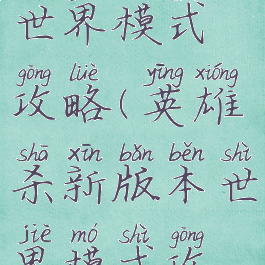 世界模式
gōng lüè yīng xióng
攻略(英雄
shā xīn bǎn běn shì
杀新版本世
jiè mó shì gōng
界模式攻